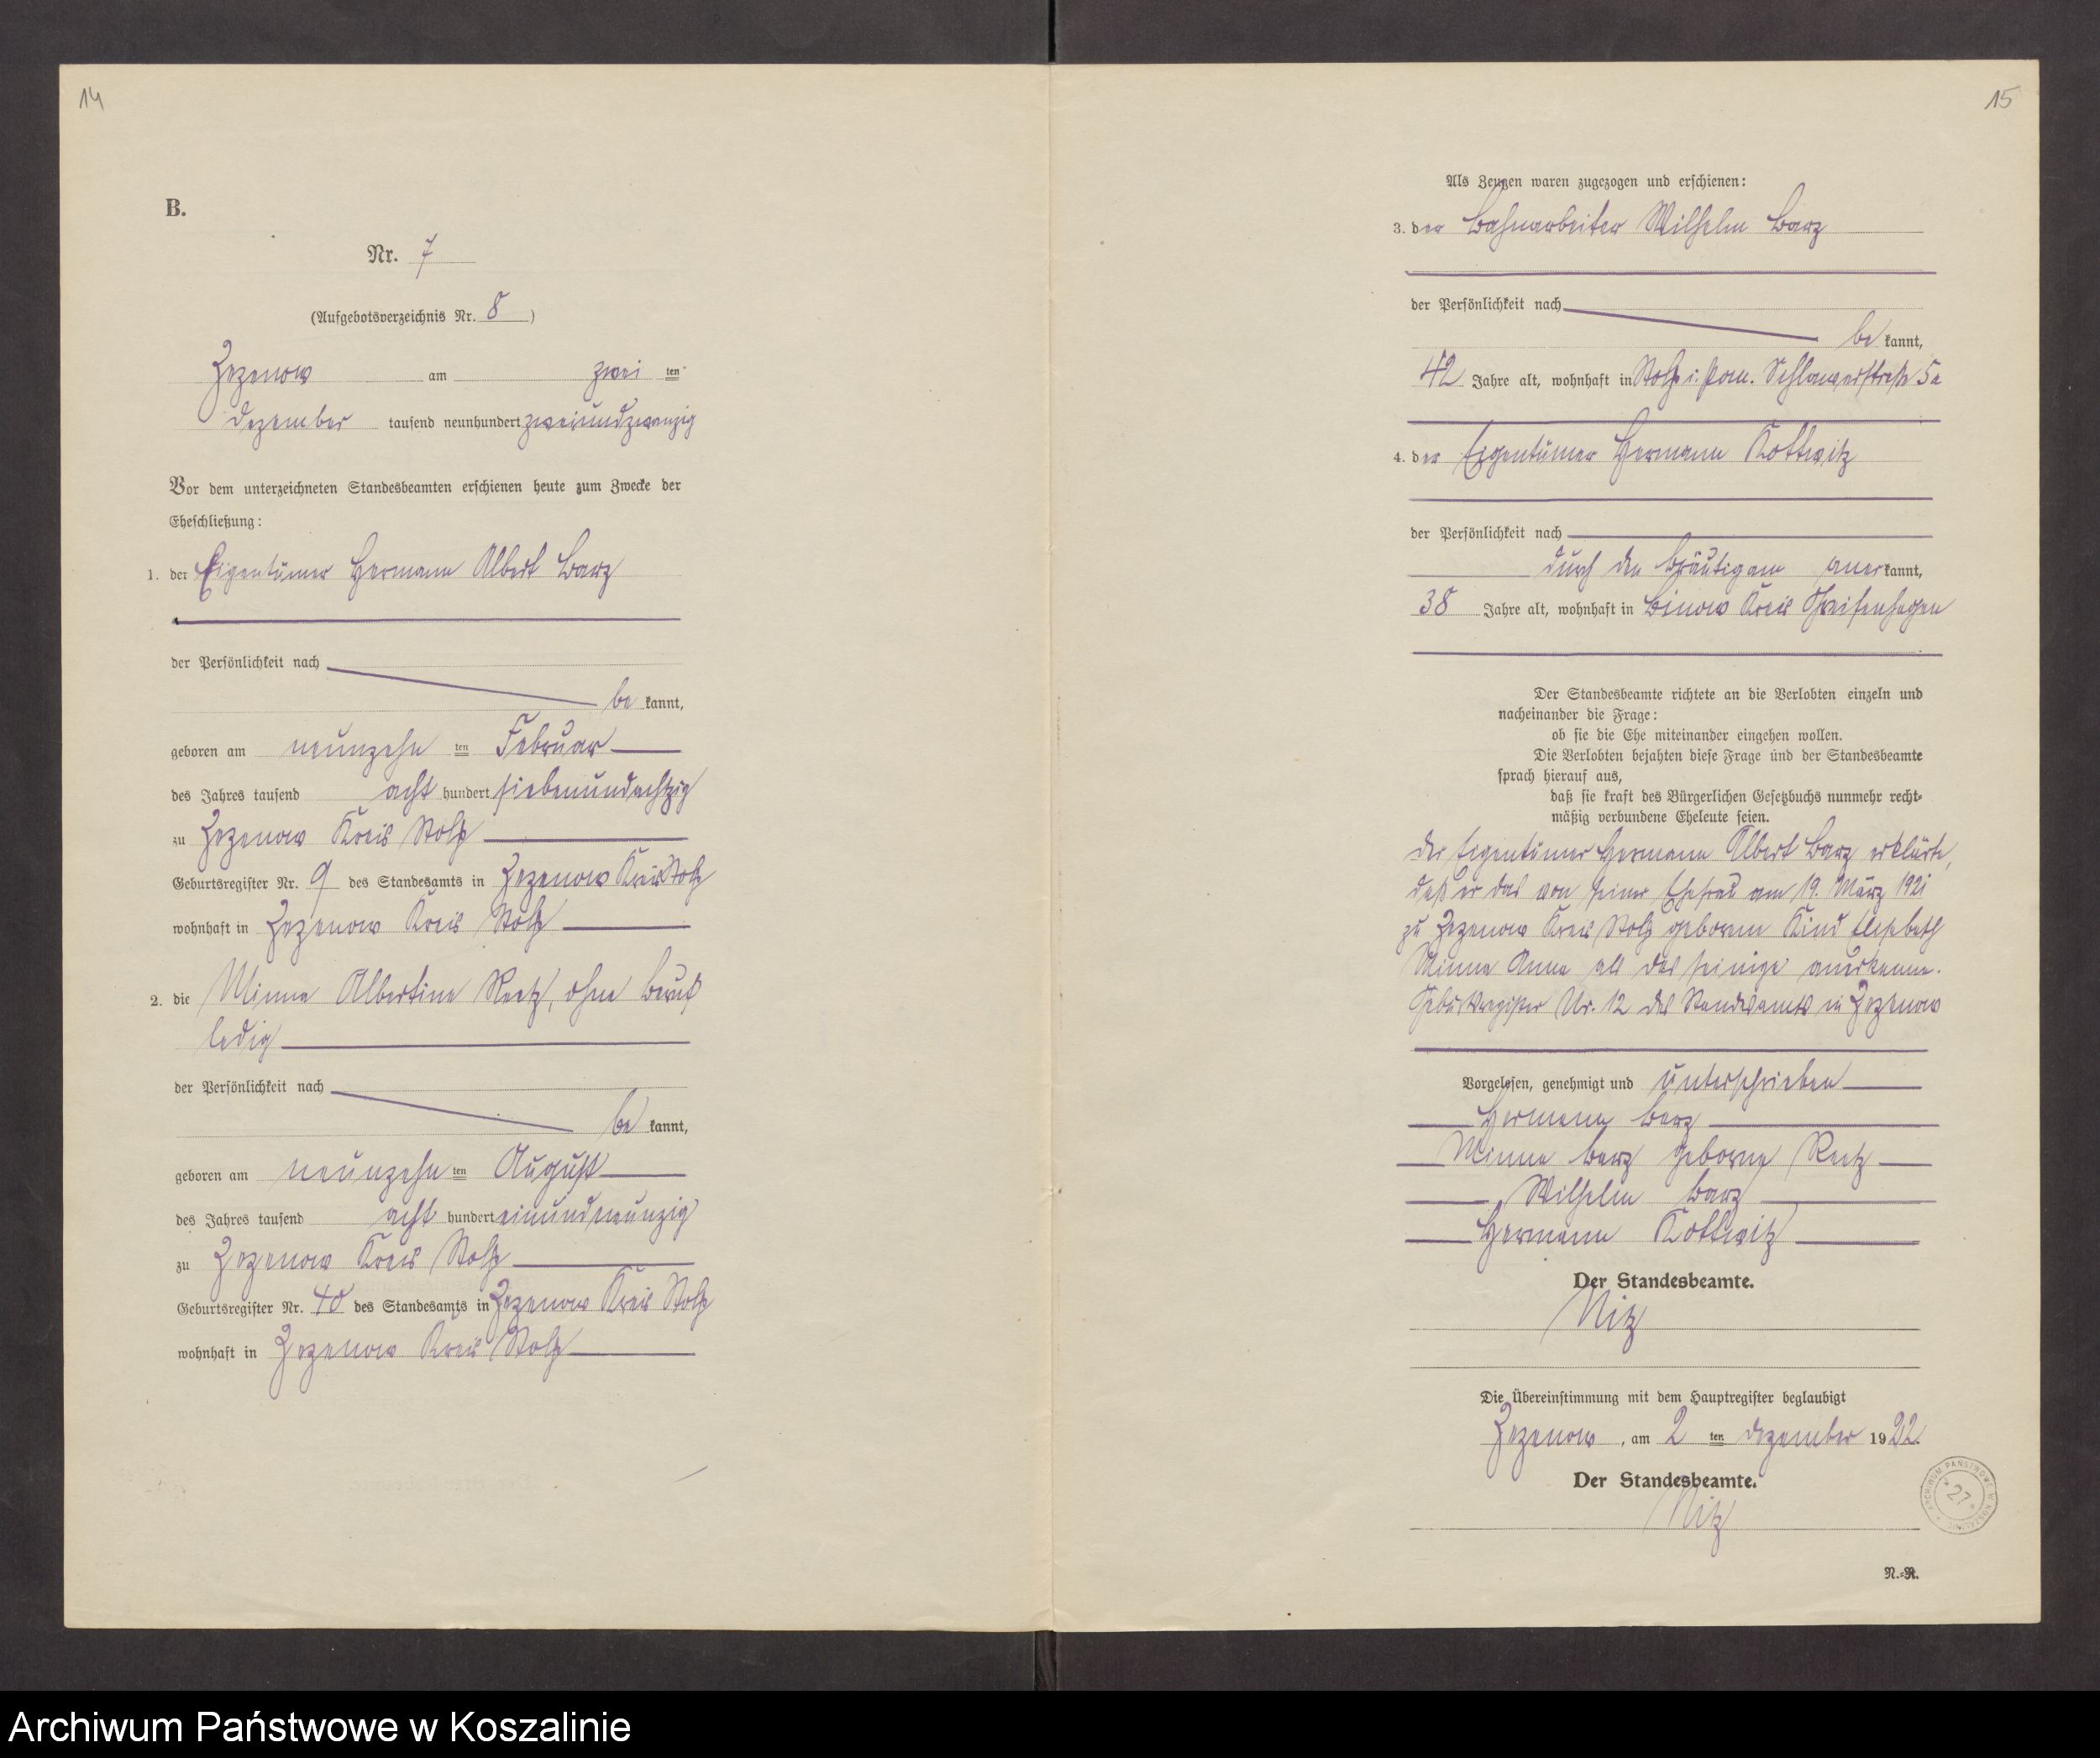 14
B.
Nr. 7
(Aufgebotsverzeichnis Nr. 8)
Zezenow am zwei ten
Dezember tausend neunhundert zweiundzwanzig
Vor dem unterzeichneten Standesbeamten erschienen heute zum Zwecke der
Eheschließung:
1. der Eigentümer Hermann Albert Barz
der Persönlichkeit nach
be kannt,
geboren am neunzehn ten Februar
des Jahres tausend acht hundert siebenundachtzig
zu Zezenow Kreis Stolp
Geburtsregister Nr. 9 des Standesamts in Zezenow Kreis Stolp
wohnhaft in Zezenow Kreis Stolp
2. die Minna Albertine Reetz, ohne Beruf
ledig
der Persönlichkeit nach
be kannt,
geboren am neunzehn ten August
des Jahres tausend acht hundert einundneunzig
zu Zezenow Kreis Stolp
Geburtsregister Nr. 40 des Standesamts in Zezenow Kreis Stolp
wohnhaft in Zezenow Kreis Stolp
15
Als Zeugen waren zugezogen und erschienen:
3. der Bahnarbeiter Wilhelm Barz
der Persönlichkeit nach
be kannt,
42 Jahre alt, wohnhaft in Stolp i. Pom. Schlawerstraße 5a
4. der Eigentümer Hermann Kottwitz
der Persönlichkeit nach
durch den Bräutigam aner kannt,
38 Jahre alt, wohnhaft in Binow Kreis Greifenhagen
Der Standesbeamte richtete an die Verlobten einzeln und
nacheinander die Frage:
ob sie die Ehe miteinander eingehen wollen.
Die Verlobten bejahten diese Frage und der Standesbeamte
sprach hierauf aus,
daß sie kraft des Bürgerlichen Gesetzbuchs nunmehr recht-
mäßig verbundene Eheleute seien.
Der Eigentümer Hermann Albert Barz erklärte,
daß er das von seiner Ehefrau am 19. März 1921
zu Zezenow Kreis Stolp geborene Kind Elisabeth
Minna Anna als das seinige anerkenne.
Geburtsregister Nr. 12 des Standesamts in Zezenow
Vorgelesen, genehmigt und unterschrieben
Hermann Barz
Minna Barz geborne Reetz
Wilhelm Barz
Hermann Kottwitz
Der Standesbeamte.
Nitz
Die Übereinstimmung mit dem Hauptregister beglaubigt
Zezenow, am 2 ten Dezember 1922.
Der Standesbeamte.
Nitz
ARCHIWUM PAŃSTWOWE W KOSZALINIE
* 27 *
N.-R.
Archiwum Państwowe w Koszalinie